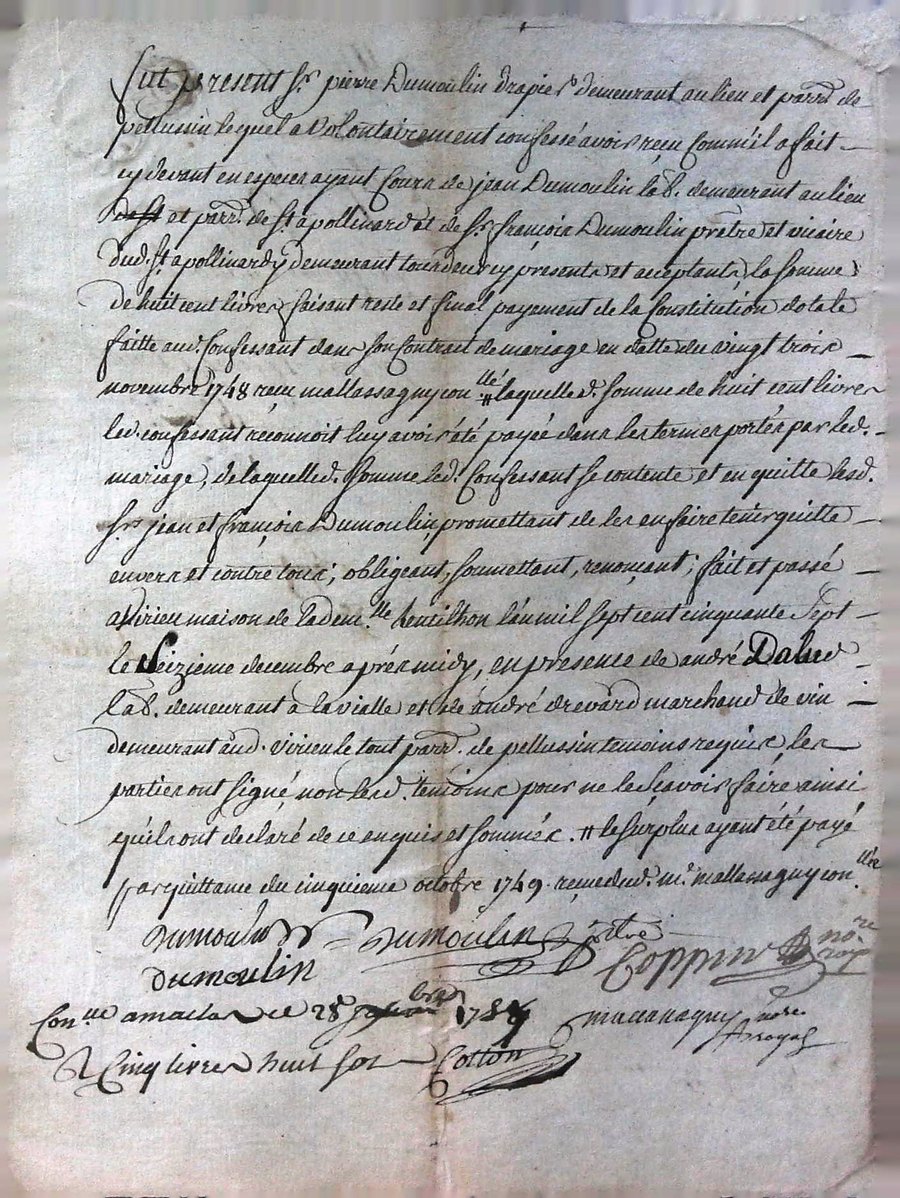 fut present Sr. pierre Dumoulin drapier demeurant au lieu et parr. de
pellussin lequel a Volontairement confessé avoir reçu Comm'il a fait
cy devant en especes ayant Cours de jean Dumoulin lab. demeurant au lieu
de St et parr. de St. apollinard et de Sr. françois Dumoulin prêtre et vicaire
dud. St. apollinard y demeurant tous deux cy presents et acceptants, la somme
de huit cent livres faisant reste et final payement de la Constitution dotale
faitte aud. Confessant dans son Contrat de mariage en datte du vingt trois
novembre 1748 reçu mallassagny con.llé # laquelle d. somme de huit cent livres
led. confessant reconnoit luy avoir été payée dans les termes portés par led.
mariage, de laquelle d. somme led. Confessant se contente et en quitte lesd.
Srs. jean et françois Dumoulin, promettant de les en faire tenir quitte
envers et contre tous; obligeant, soumettant, renonçant; fait et passé
a Virieu maison de la dem.lle l'an mil sept cent cinquante Sept
le Seizieme decembre aprés midy, en presence de andré
lab. demeurant à la vialle et de andré drevard marchand de vin
demeurant aud. virieu le tout parr. de pellussin temoins requis les
parties ont signé non lesd. temoins pour ne le sçavoir faire ainsi
qu'ils ont declaré de ce enquis et sommés. # le surplus ayant été payé
par quittance du cinquieme octobre 1749. reçue dud. m.e mallassagny con.llée
Dumoulin Dumoulin ptre
Dumoulin Coppin no.re roy.
Con.lle a maclas le 28 bre
mallassagny no.re royal
R Cinq livres huit sols Cotton